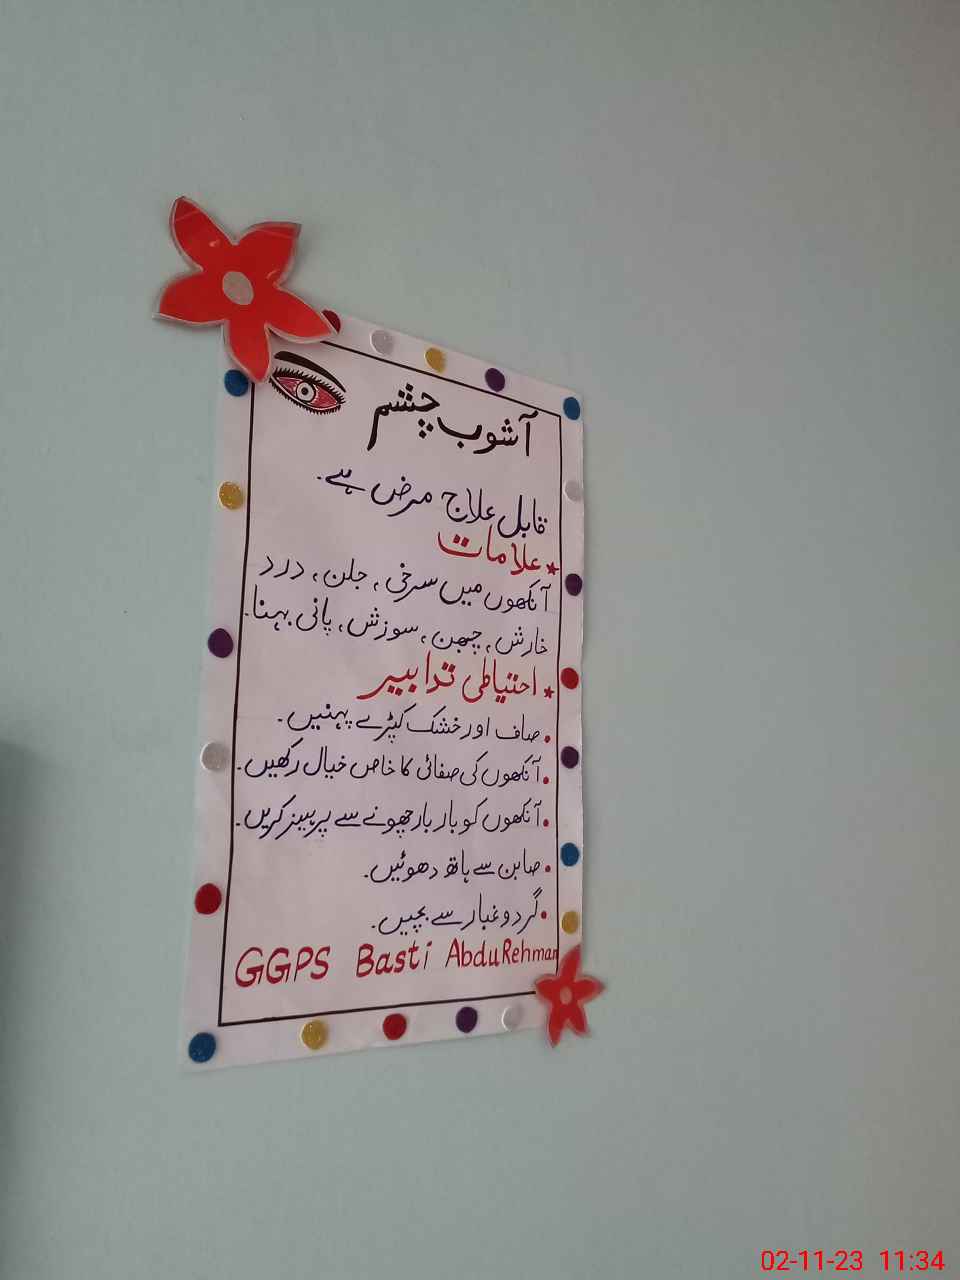 آشوب چشم
قابل علاج مرض ہے۔
* علامات
آنکھوں میں سرخی، جلن، درد
خارش، چبھن، سوزش، پانی بہنا۔
* احتیاطی تدابیر
• صاف اور خشک کپڑے پہنیں۔
• آنکھوں کی صفائی کا خاص خیال رکھیں۔
• آنکھوں کو بار بار چھونے سے پرہیز کریں۔
• صابن سے ہاتھ دھوئیں۔
• گردوغبار سے بچیں۔
GGPS Basti AbduRehman
02-11-23 11:34